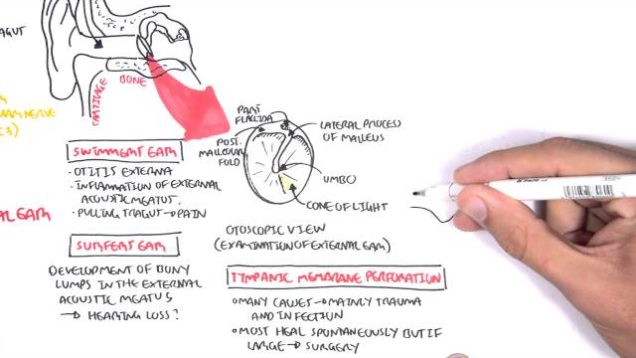 RAGUT
NERVE
CARTILAGE
BONE
PARS
FLACIDA
LATERAL PROCESS
OF MALLEUS
POST.
MALLEOLAR
FOLD
UMBO
CONE OF LIGHT
SWIMMERS EAR
• OTITIS EXTERNA
• INFLAMMATION OF EXTERNAL
ACOUSTIC MEATUS.
• PULLING TRAGUS → PAIN
EAR
SURFERS EAR
DEVELOPMENT OF BONY
LUMPS IN THE EXTERNAL
ACOUSTIC MEATUS
→ HEARING LOSS?
OTOSCOPIC VIEW
(EXAMINATION OF EXTERNAL EAR)
TYMPANIC MEMBRANE PERFORATION
○ MANY CAUSES → MAINLY TRAUMA
AND INFECTION
○ MOST HEAL SPONTANEOUSLY BUT IF
LARGE → SURGERY